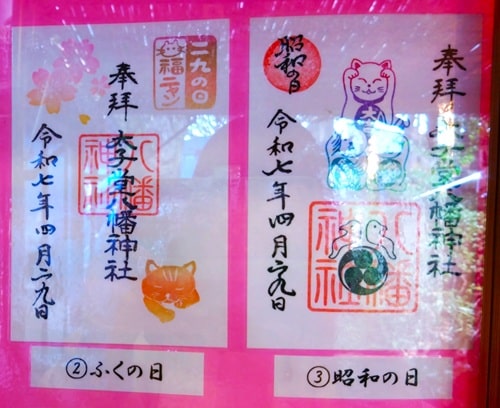 二九の日
福ニャン
奉拝
太子堂八幡神社
八幡神社
令和七年四月二九日
②ふくの日
昭和の日
奉拝
太子堂八幡神社
八幡神社
令和七年四月二九日
③昭和の日